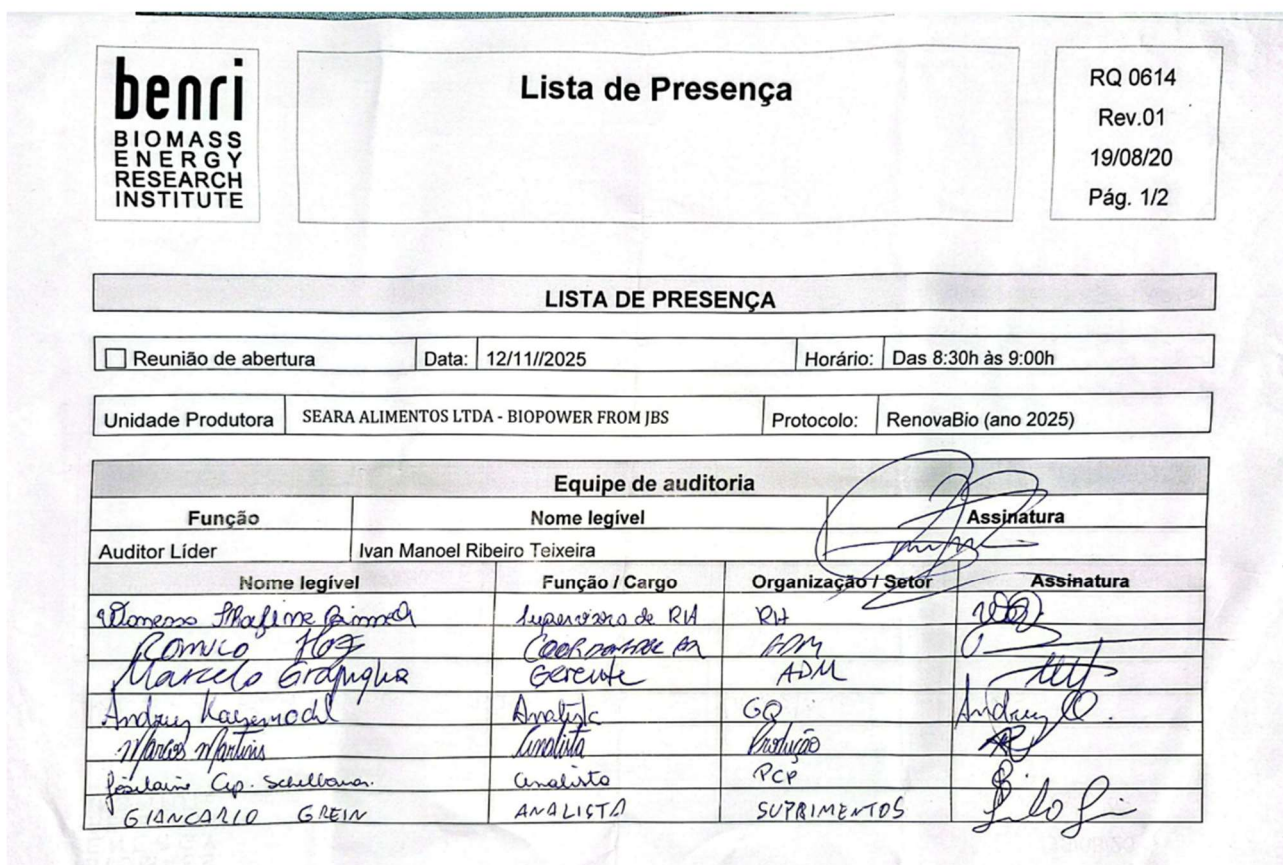 benri
BIOMASS
ENERGY
RESEARCH
INSTITUTE
Lista de Presença
RQ 0614
Rev.01
19/08/20
Pág. 1/2
LISTA DE PRESENÇA
Reunião de abertura Data: 12/11//2025 Horário: Das 8:30h às 9:00h
Unidade Produtora SEARA ALIMENTOS LTDA - BIOPOWER FROM JBS Protocolo: RenovaBio (ano 2025)
Equipe de auditoria
Função Nome legível Assinatura
Auditor Líder Ivan Manoel Ribeiro Teixeira
Nome legível Função / Cargo Organização / Setor Assinatura
Supervisora de RH RH
ADM
Marcelo Gerente ADM
Andrey Analista GQ Andrey
Marcos Martins Analista Produção
Josilaine Ap. analista PCP
GIANCARLO GREIN ANALISTA SUPRIMENTOS